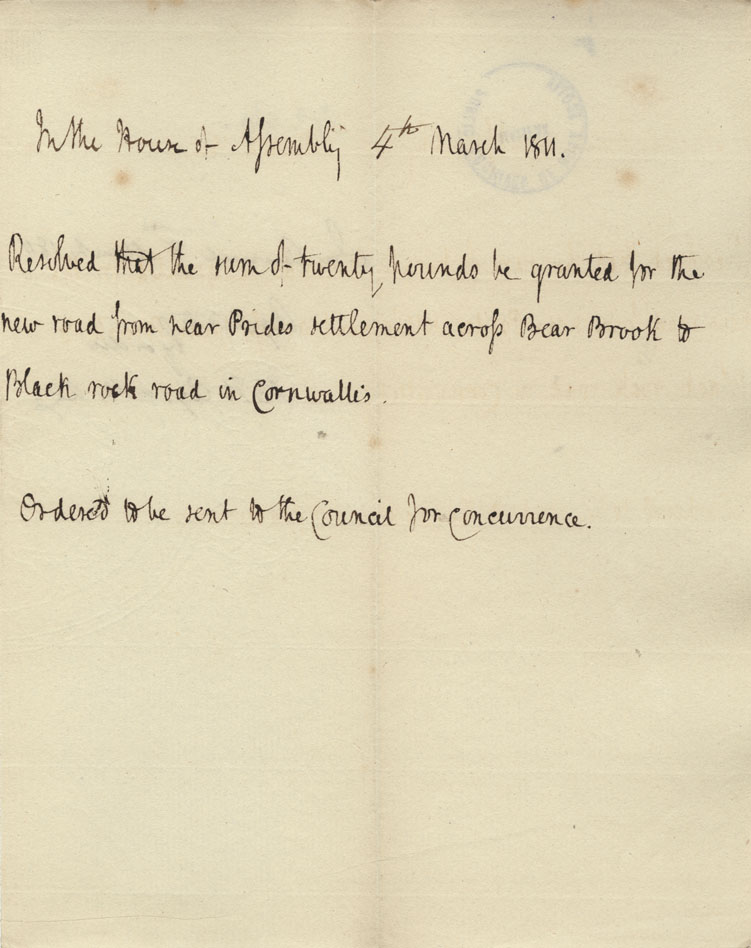 In the House of Assembly 4th March 1811.
Resolved that the sum of twenty pounds be granted for the
new road from near Prides settlement across Bear Brook to
Black rock road in Cornwallis.
Ordered to be sent to the Council for Concurrence.